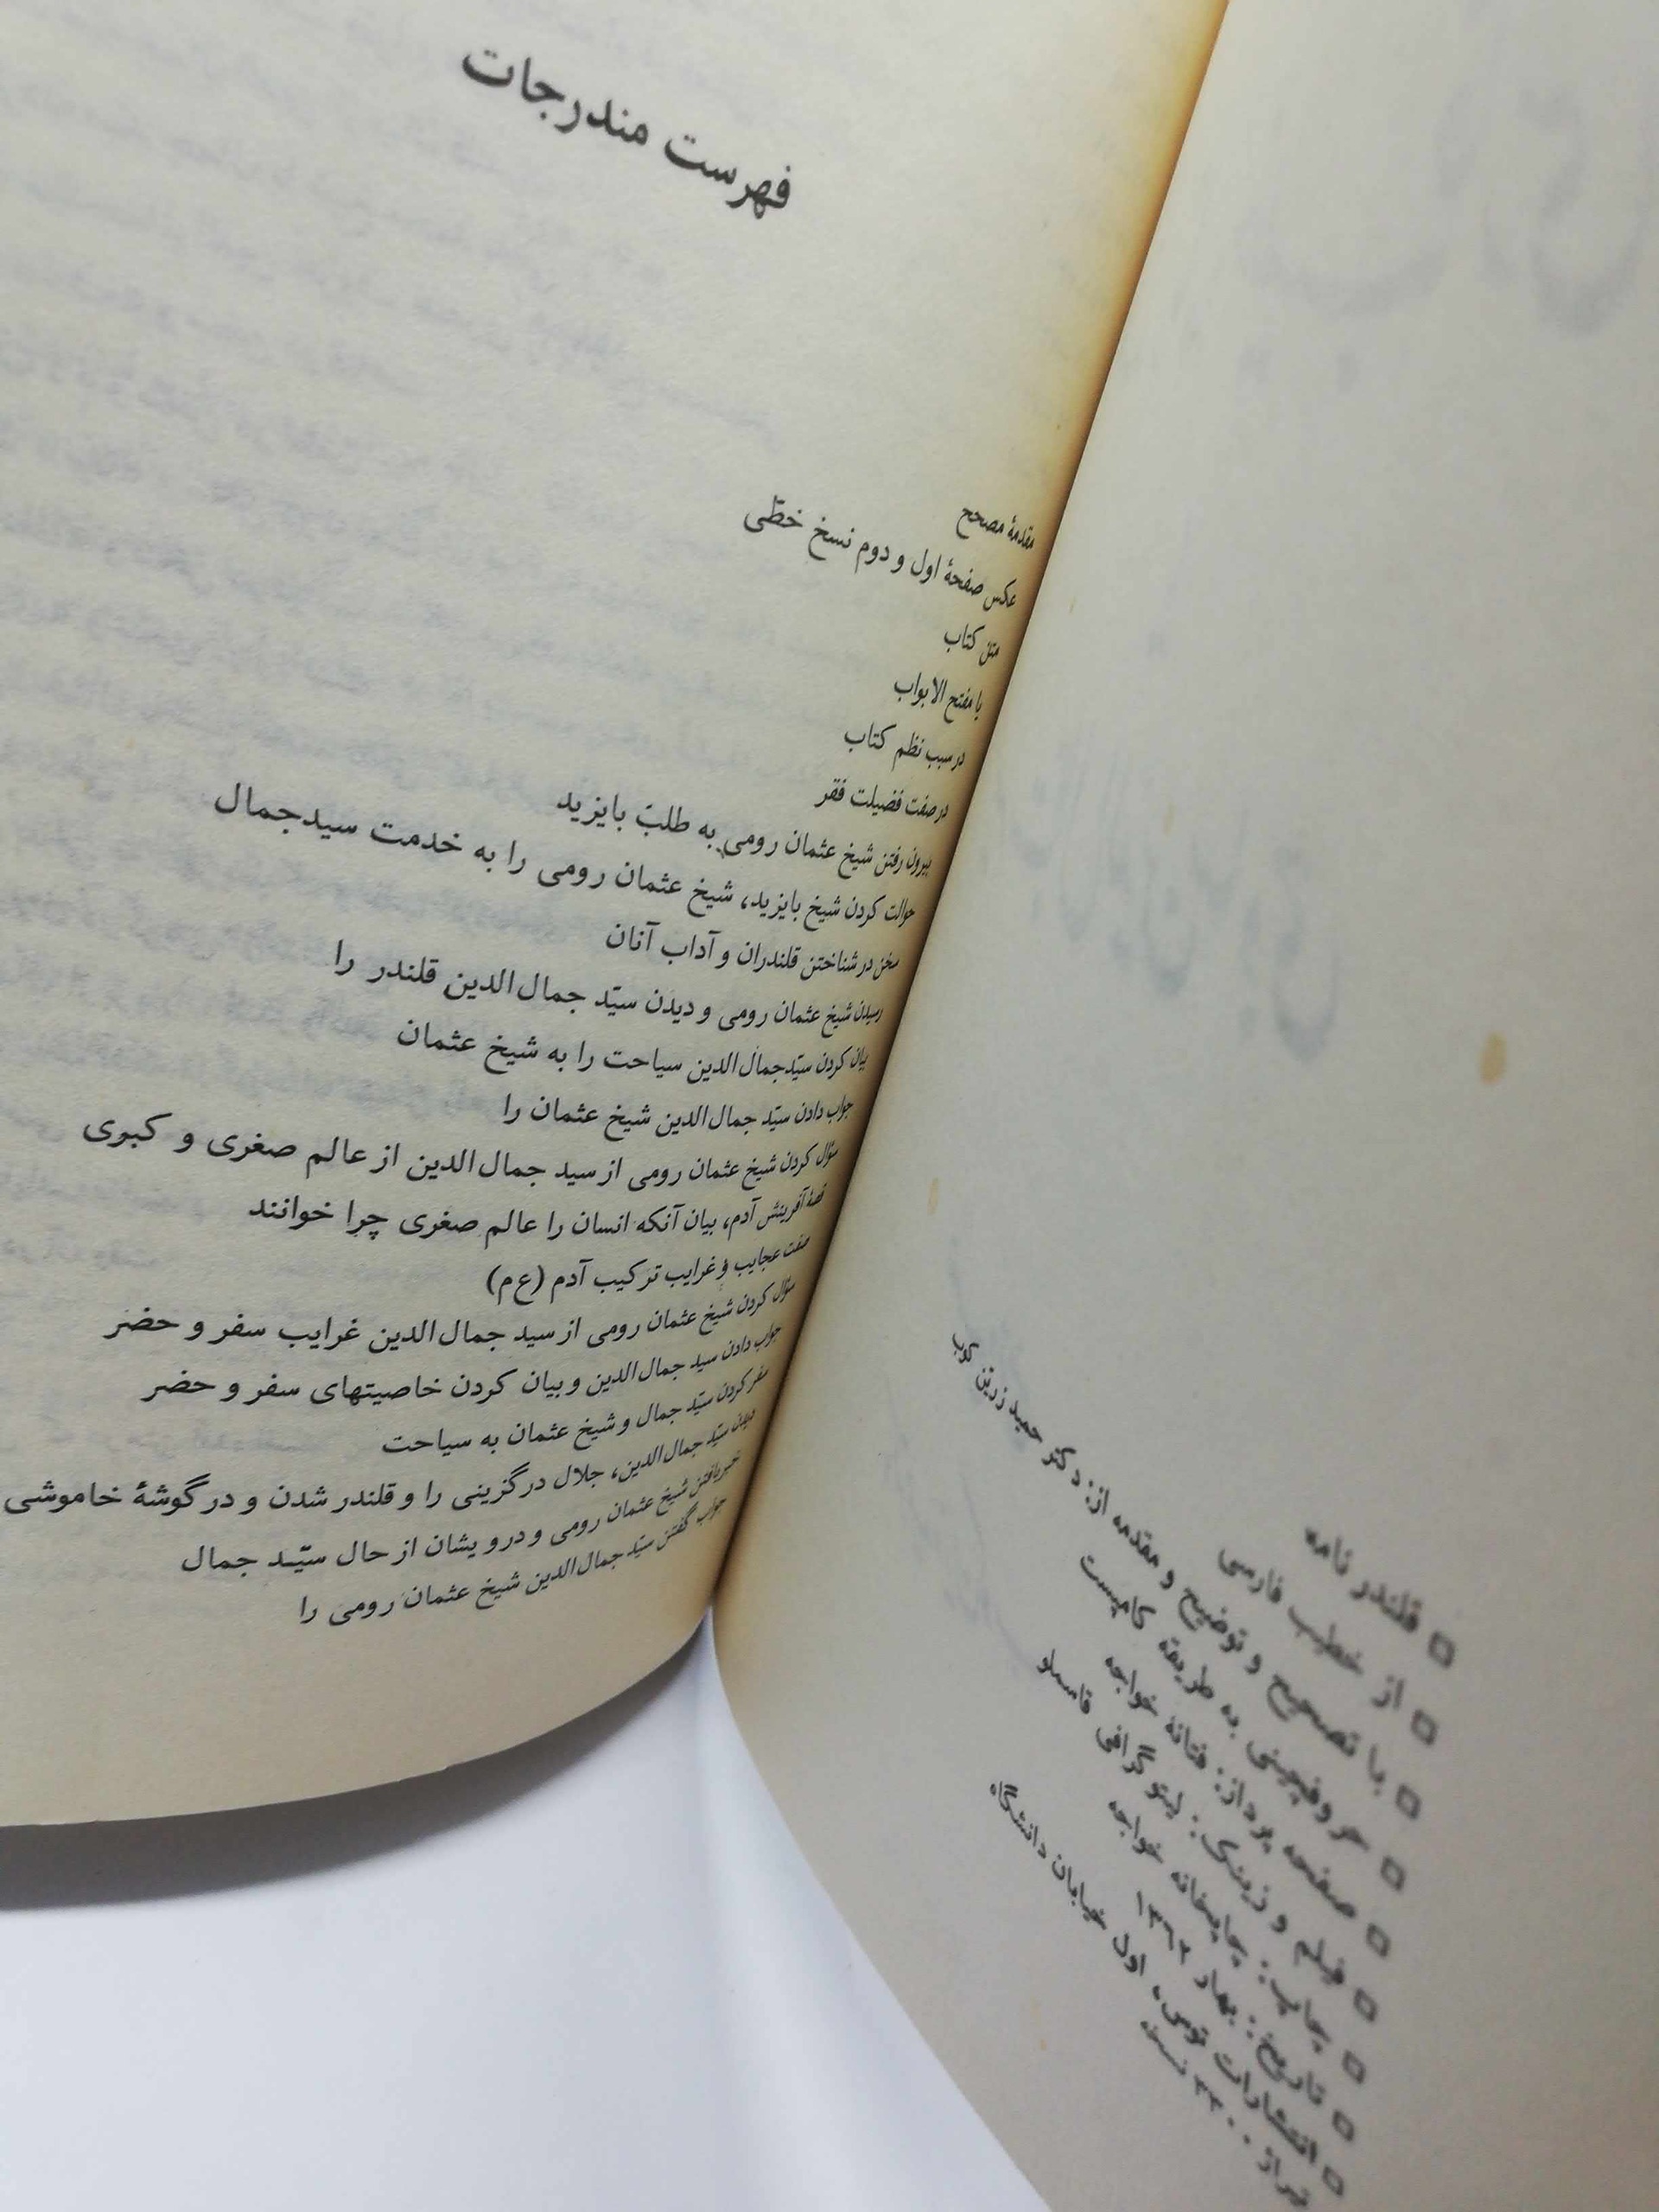 قلندر نامه
از خطیب فارسی
با تصحیح و توضیح و مقدمه از: دکتر حمید زرین کوب
حروفچینی به طریقه کامپست
صفحه پرداز: فتانه خواجه
فیلم و زینک: لیتوگرافی قاسملو
چاپ: چاپخانه خواجه
تاریخ: بهار ۱۳۶۲
انتشارات توس، اول خیابان دانشگاه
تیراژ ۳۳۰۰ نسخه
فهرست مندرجات
مقدمهٔ مصحح
عکس صفحهٔ اول و دوم نسخ خطّی
متن کتاب
یا مفتح الابواب
در سبب نظم کتاب
در صفت فضیلت فقر
بیرون رفتن شیخ عثمان رومی به طلب بایزید
حوالت کردن شیخ بایزید، شیخ عثمان رومی را به خدمت سیدجمال
سخن در شناختن قلندران و آداب آنان
رسیدن شیخ عثمان رومی و دیدن سیّد جمال‌الدین قلندر را
بیان کردن سیّدجمال‌الدین سیاحت را به شیخ عثمان
جواب دادن سیّد جمال‌الدین شیخ عثمان را
سؤال کردن شیخ عثمان رومی از سید جمال‌الدین از عالم صغری و کبری
قصهٔ آفرینش آدم، بیان آنکه انسان را عالم صغری چرا خوانند
صفت عجایب و غرایب ترکیب آدم (ع م)
سؤال کردن شیخ عثمان رومی از سید جمال‌الدین غرایب سفر و حضر
جواب دادن سید جمال‌الدین و بیان کردن خاصیتهای سفر و حضر
سفر کردن سیّد جمال و شیخ عثمان به سیاحت
دیدن سیّد جمال‌الدین، جلال درگزینی را و قلندر شدن و در گوشهٔ خاموشی
خبر یافتن شیخ عثمان رومی و درویشان از حال سیّد جمال
جواب گفتن سیّد جمال‌الدین شیخ عثمان رومی را